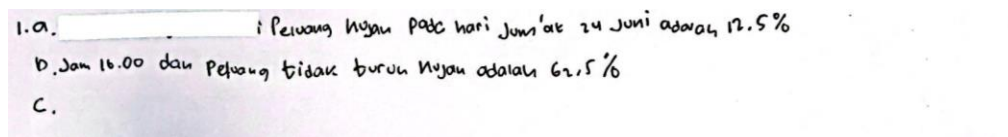 1.a. : Peluang hujan pada hari Jum'at 24 Juni adalah 12.5%
b. Jam 16.00 dan Peluang tidak turun hujan adalah 62,5%
c.